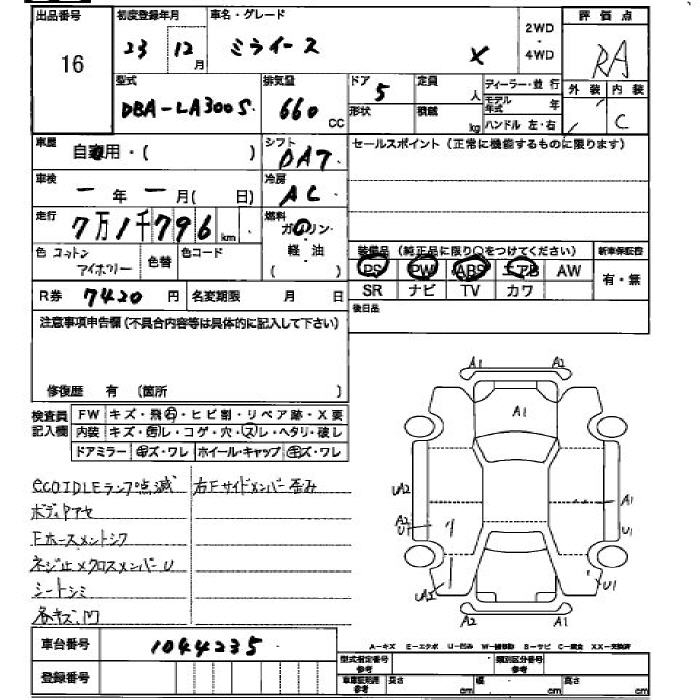 出品番号 初度登録年月 車名・グレード 2WD・4WD 評価点
16 23 12月 ミライース X RA
型式 排気量 ドア 定員 ディーラー・並行 外装 内装
DBA-LA300S 660 CC 5 人 モデル年式 年 C
形状 積載 kg ハンドル 左・右
車歴 自家用・( ) シフト DAT セールスポイント(正常に機能するものに限ります)
車検 一年一月( 日) 冷房 AC
走行 7万1千796km 燃料 ガソリン・軽油( )
色 コットンアイボリー 色替 色コード 装備品(純正品に限り○をつけてください) 新車保証書
PS PW ABS エアB AW 有・無
R券 7420円 名変期限 月 日 SR ナビ TV カワ
注意事項申告欄(不具合内容等は具体的に記入して下さい) 後日品
修復歴 有 (箇所 )
検査員記入欄 FW キズ・飛石・ヒビ割・リペア跡・X要
内装 キズ・汚レ・コゲ・穴・スレ・ヘタリ・破レ
ドアミラー キズ・ワレ ホイール・キャップ キズ・ワレ
A1 A2
A1
UA2 A1
A2 U1 U1
A2 U1
A2 A1
ecoIDLEランプ点滅 右Fサイドメンバー歪み
ボディアセ
Fホースメントシワ
ネジ止メクロスメンバーU
シートシミ
各キズ、凹
車台番号 1044235
登録番号
A-キズ E-エクボ U-凹み W-補修跡 S-サビ C-腐食 XX-交換済
型式指定番号 参考 類別区分番号 参考
車庫証明用 参考 長さ cm 幅 cm 高さ cm